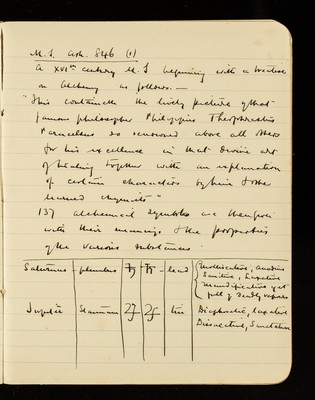 M.S. Ash. 846 (1)
A XVIth century M.S beginning with a treatise
on Alchemy as follows. —
"This containeth the lively picture of that
famous philosopher Philippus Theophrastus
Paracelsus so renowned above all others
for his excellence in that Devine art
of healing together with an explanation
of certain characters by him & other
learned chymists"
137 alchemical symbols are then given
with their meanings & the properties
of the various substances
Saturnus - plumbum - lead Mollificative,
Sanitive, Laxative
Mundificative yet
full of Deadly vapours
Jupiter Stannum tin Diaphoretic, laxative
Dissolutive,